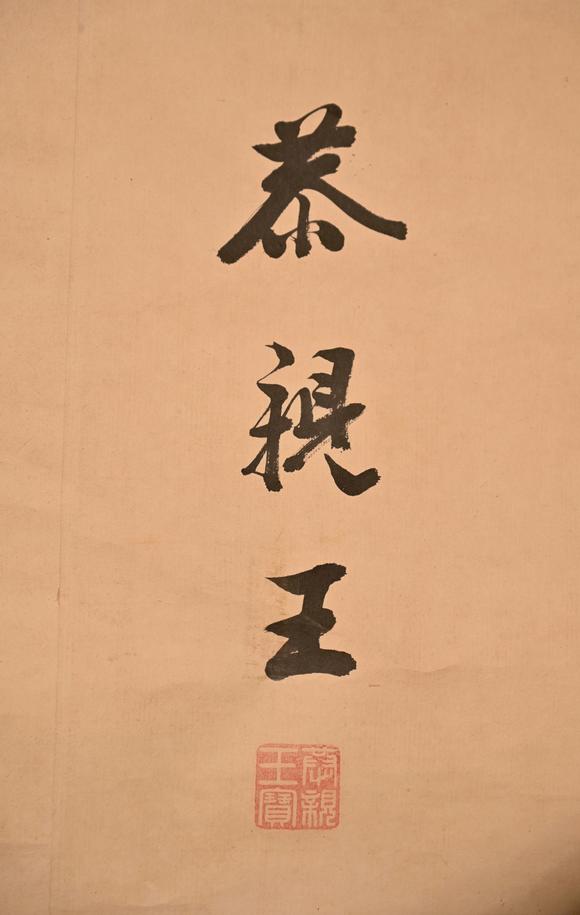 恭親王
恭親
王寶